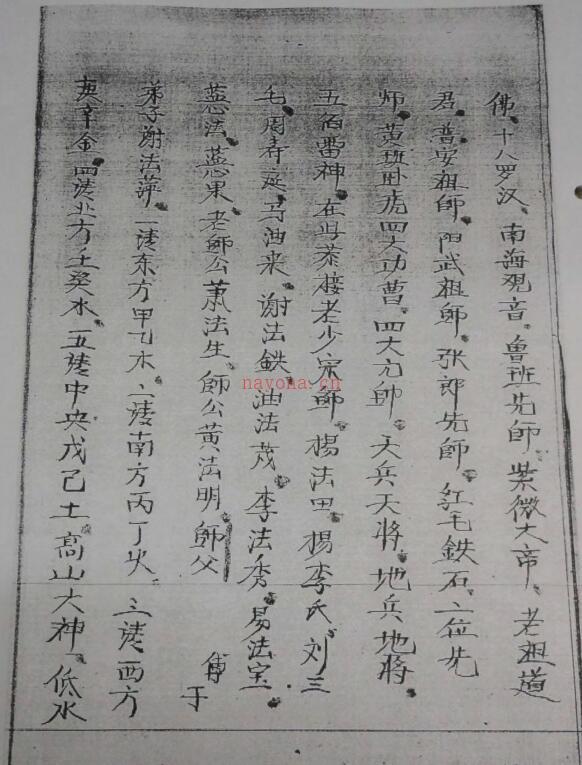 佛、十八罗汉、南海观音、鲁班先师、紫微大帝、老祖道
君、普安祖師、阳武祖師、张郎先師、红毛鉄石、二位先
師、黄班卧虎四大功曹、四大元帥、天兵天將、地兵地將、
五佰雷神、在吳茶楼老少宗師、楊法田、楊李氏、刘三
毛、周寿延、马油来、谢法鉄、油法茂、李法秀、易法宝、
慈法、慈果、老師公萧法生、師公黄法明、師父
傅于
弟子谢法萍、一请东方甲乙木、二请南方丙丁火、三请西方
庚辛金、四请北方壬癸水、五请中央戊己土、高山大神、低水
nayona.cn